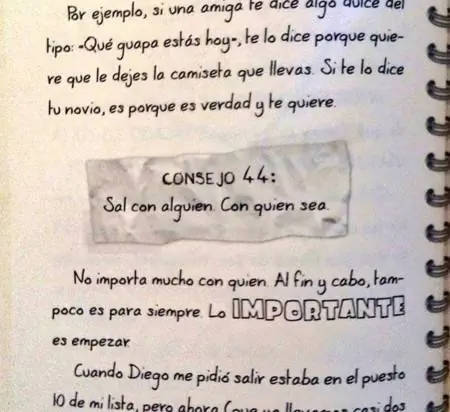 Por ejemplo, si una amiga te dice algo dulce del
tipo: «Qué guapa estás hoy», te lo dice porque quie-
re que le dejes la camiseta que llevas. Si te lo dice
tu novio, es porque es verdad y te quiere.
CONSEJO 44:
Sal con alguien. Con quien sea.
No importa mucho con quien. Al fin y cabo, tam-
poco es para siempre. Lo IMPORTANTE
es empezar.
Cuando Diego me pidió salir estaba en el puesto
10 de mi lista, pero ahora (que ya llevamos casi dos